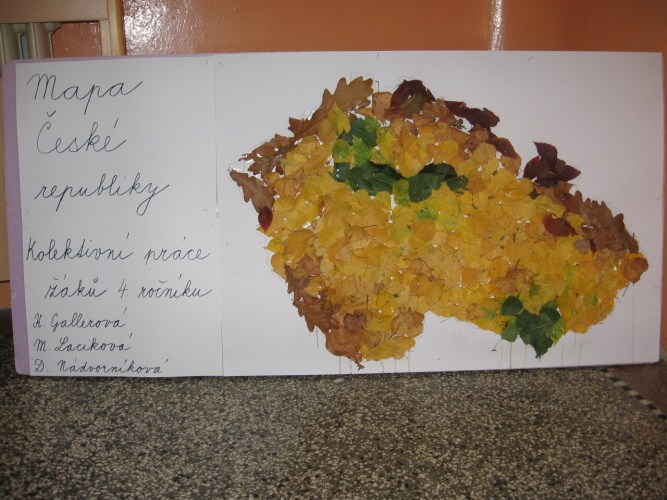 Mapa
České
republiky
Kolektivní práce
žáků 4. ročníku
K. Gallerová
M. Lacíková
D. Nádvorníková